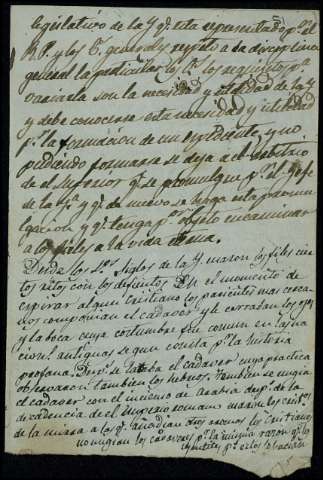 legislativo de la Yª qe esta representado pr el
R. P. y los C. generales respeto a la disciplina
general la particular los requisitos pa
variarla son la necesidad y utilidad de la Yª
y debe conocerse esta necesidad y utilidad
pr la formacion de un expediente, y no
pudiendo formarse se deja a el arbitrio
de el Superior qe se promulgue pr el Gefe
de la Yª y qe de nuevo se haga esta promul
gacion y qe tenga pr objeto encaminar
a los fieles a la vida eterna.
Desde los 1os Siglos de la Yª usaron los fieles cier
tos ritos con los difuntos. En el momento de
espirar algun Cristiano los parientes mas cerca
nos componian el cadaver y le cerraban los ojos
y la boca cuya costumbre fue comun en las na
ciones antiguas segun consta pr la historia
profana. Desps se lavaba el cadaver cuya practica
observaron tambien los hebreos. Tambien se ungia
el cadaver con el incienso de Arabia desps de la
decadencia de el Imperio romano usaron los cristos
de la mirra a los qe añadian otros aromas los Cristianos
no ungian los cadaveres pr la misma razon qe los
gentiles pr estos lo hacian